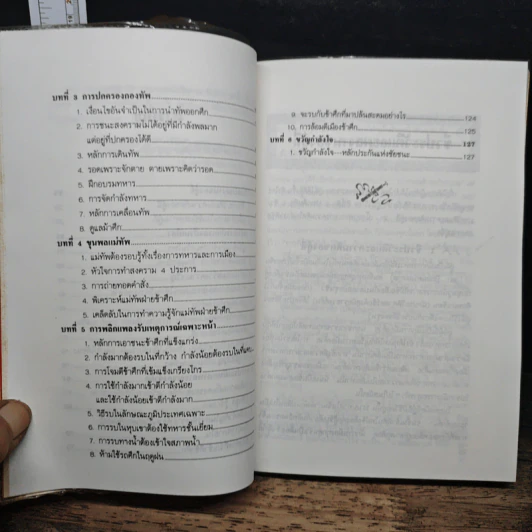 บทที่ 3 การปกครองกองทัพ
1. เงื่อนไขอันจำเป็นในการนำทัพออกศึก
2. การชนะสงครามไม่ได้อยู่ที่มีกำลังพลมาก
แต่อยู่ที่ปกครองได้ดี
3. หลักการเดินทัพ
4. รอดเพราะจักตาย ตายเพราะคิดว่ารอด
5. ฝึกอบรมทหาร
6. การจัดกำลังทหาร
7. หลักการเคลื่อนทัพ
8. ดูแลม้าศึก
บทที่ 4 ขุนพลแม่ทัพ
1. แม่ทัพต้องรอบรู้ทั้งเรื่องการทหารและการเมือง
2. หัวใจการทำสงคราม 4 ประการ
3. การถ่ายทอดคำสั่ง
4. พิเคราะห์แม่ทัพฝ่ายข้าศึก
5. เคล็ดลับในการทำความรู้จักแม่ทัพฝ่ายข้าศึก
บทที่ 5 การพลิกแพลงรับเหตุการณ์เฉพาะหน้า
1. หลักการเอาชนะข้าศึกที่แข็งแกร่ง
2. กำลังมากต้องรบในที่กว้าง กำลังน้อยต้องรบในที่แคบ
3. การโจมตีข้าศึกที่เข้มแข็งเกรียงไกร
4. การใช้กำลังมากเข้าตีกำลังน้อย
และใช้กำลังน้อยเข้าตีกำลังมาก
5. วิธีรบในลักษณะภูมิประเทศเฉพาะ
6. การรบในหุบเขาต้องใช้ทหารชั้นเยี่ยม
7. การรบทางน้ำต้องเข้าใจสภาพน้ำ
8. ห้ามใช้รถศึกในฤดูฝน
9. จะรบกับข้าศึกที่มาปล้นสะดมอย่างไร 124
10. การล้อมตีเมืองข้าศึก 125
บทที่ 6 ขวัญกำลังใจ 127
1. ขวัญกำลังใจ—หลักประกันแห่งชัยชนะ 127